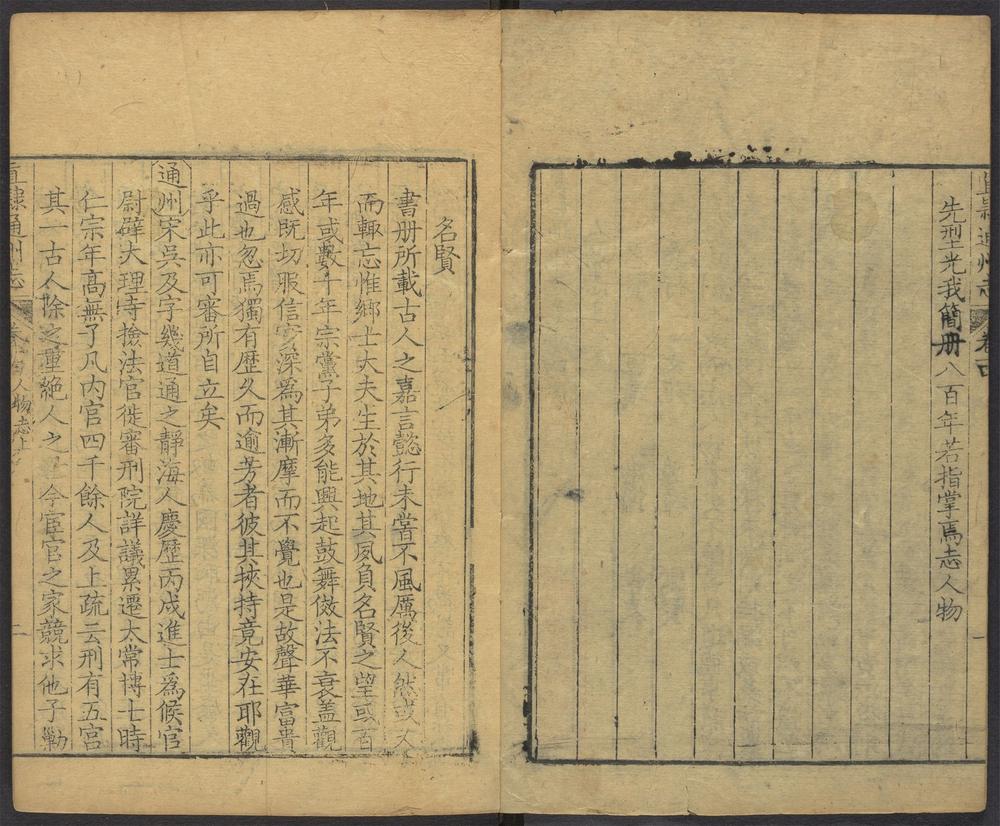 直隸通州志 卷四
先型光我簡册八百年若指掌焉志人物
名賢
書册所載古人之嘉言懿行未嘗不風厲後人然或久
而輒忘惟鄉士大夫生於其地其夙負名賢之望或百
年或數十年宗黨子弟多能興起鼓舞倣法不衰盖觀
感既切服信寔深爲其漸摩而不覺也是故聲華富貴
過也忽焉獨有歷久而逾芳者彼其挾持竟安在耶觀
乎此亦可審所自立矣
通州宋吳及字幾道通之靜海人慶歷丙戌進士爲候官
尉辟大理寺檢法官徙審刑院詳議累遷太常博士時
仁宗年高無子凡内官四千餘人及上疏云刑有五宫
其一古人除之重絶人之 今宦官之家競求他子勦
直隸通州志 人物志上 二